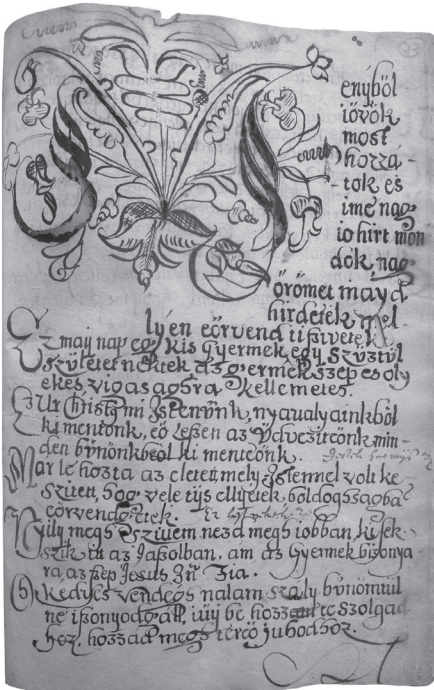 M
enyböl
iövök
most
hozzá-
tok es
ime nag
io hirt mon
dok nag
örömet mayd
hirdetek mel-
lyen eörvend
Ez may nap egy kis Gyermek egy Szüztül
született néktek az gyermek szep es oly
ekes vigasagra kellemetes.
Ez Ur Christus mi Istenünk, nyaualyainkból
ki mentönk, eö leszen az Üdvezitöönk min-
den bününkbeöl ki mentöönk.
Mar le hozta az eletet mely Istennel volt ke-
szitett, hog vele tijs ellyetek, boldogsagba
eörvendgyetek.
Nyily megh Szüuem nezd megh iobban, ki fek-
szik itt az Jaszolban, am az Gyermek bizonya-
ra, az szep Jesus fia.
O Kedves vendegh nalam szaly bünömtül
ne iszonyodgyál, iüy be hozzam te Szolgad-
hoz, hozzad megh terö juhodhoz.